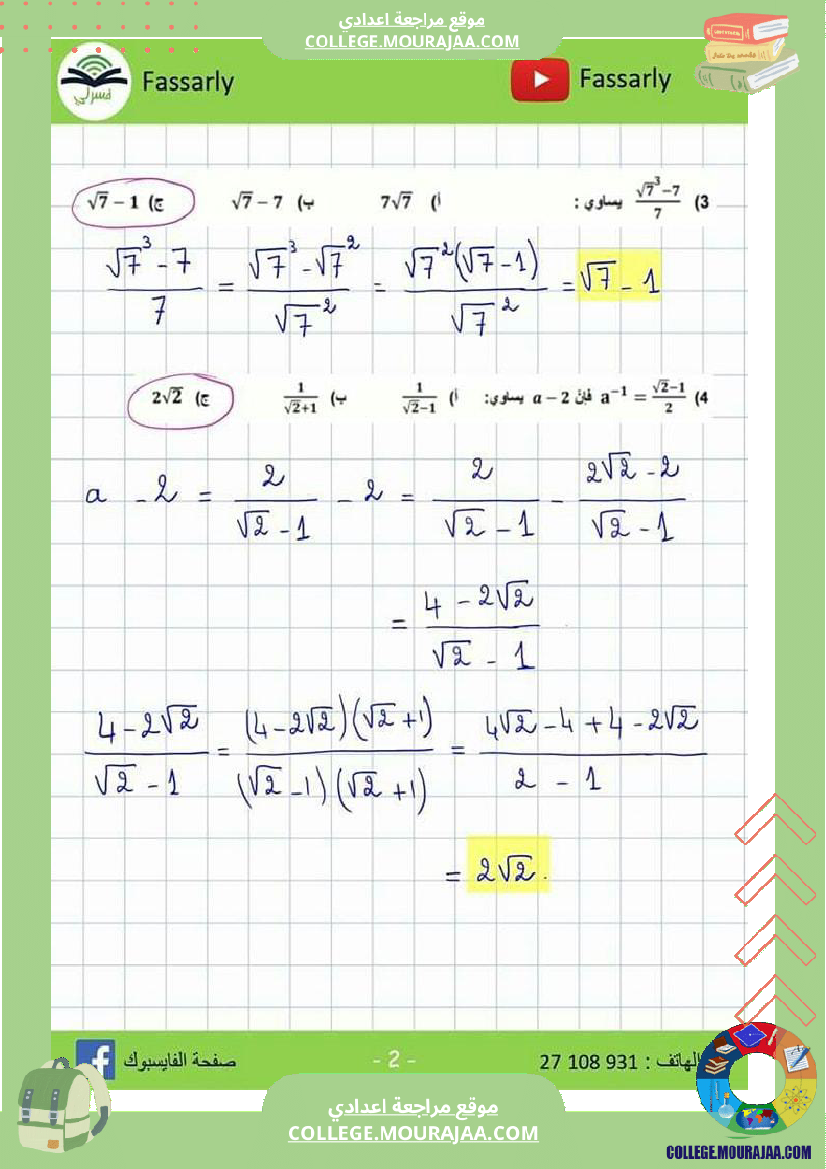 موقع مراجعة اعدادي
COLLEGE.MOURAJAA.COM
فسرلي Fassarly Fassarly
3) (√7³ − 7)/7 يساوي : أ) 7√7 ب) √7 − 7 ج) √7 − 1
(√7³ − 7)/7 = (√7³ − √7²)/√7² = √7²(√7 − 1)/√7² = √7 − 1
4) a⁻¹ = (√2−1)/2 فإن a − 2 يساوي: أ) 1/(√2−1) ب) 1/(√2+1) ج) 2√2
a − 2 = 2/(√2 − 1) − 2 = 2/(√2 − 1) − (2√2 − 2)/(√2 − 1)
= (4 − 2√2)/(√2 − 1)
(4 − 2√2)/(√2 − 1) = (4 − 2√2)(√2 + 1)/(√2 − 1)(√2 + 1) = (4√2 − 4 + 4 − 2√2)/(2 − 1)
= 2√2.
صفحة الفايسبوك - 2 - الهاتف : 27 108 931
موقع مراجعة اعدادي
COLLEGE.MOURAJAA.COM
COLLEGE.MOURAJAA.COM